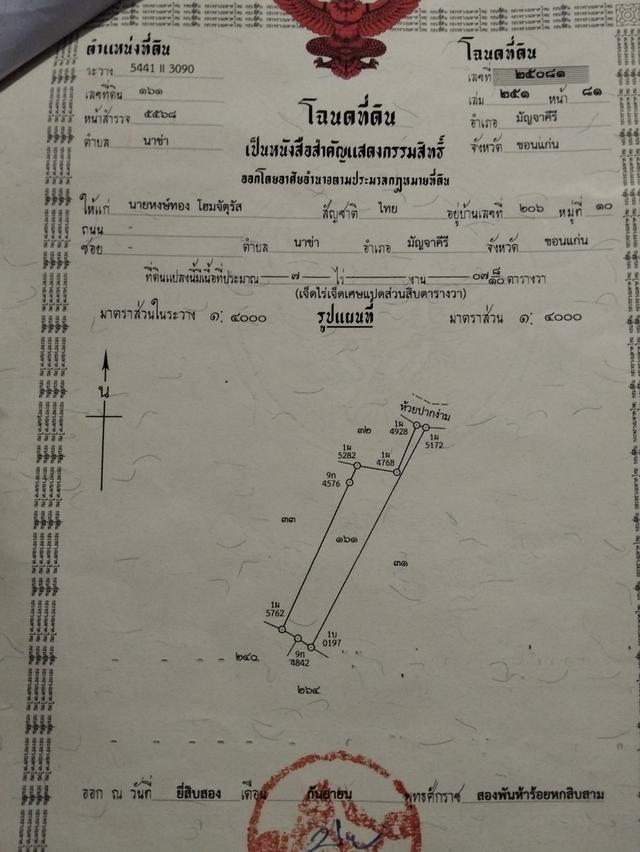 ตำแหน่งที่ดิน
ระวาง 5441 II 3090
เลขที่ดิน ๑๖๑
หน้าสำรวจ ๕๕๖๘
ตำบล นาข่า
โฉนดที่ดิน
เลขที่ ๒๕๐๘๑
เล่ม ๒๕๑ หน้า ๘๑
อำเภอ มัญจาคีรี
จังหวัด ขอนแก่น
โฉนดที่ดิน
เป็นหนังสือสำคัญแสดงกรรมสิทธิ์
ออกโดยอาศัยอำนาจตามประมวลกฎหมายที่ดิน
ให้แก่ นายหงษ์ทอง โฮมจัตุรัส สัญชาติ ไทย อยู่บ้านเลขที่ ๒๐๖ หมู่ที่ ๑๐
ถนน -
ซอย - ตำบล นาข่า อำเภอ มัญจาคีรี จังหวัด ขอนแก่น
ที่ดินแปลงนี้มีเนื้อที่ประมาณ ๗ ไร่ งาน ๐๗ ๘/๑๐ ตารางวา
(เจ็ดไร่เจ็ดเศษแปดส่วนสิบตารางวา)
มาตราส่วนในระวาง ๑: ๔๐๐๐ รูปแผนที่ มาตราส่วน ๑: ๔๐๐๐
น
ห้วยปากง่าม
๓๒
1ผ
4928
1ผ
5172
1ผ
5282
1ผ
4768
9ก
4576
๓๓
๑๖๑
๓๑
1ผ
5762
1บ
0197
9ก
4842
๒๔๐
๒๖๔
ออก ณ วันที่ ยี่สิบสอง เดือน กันยายน พุทธศักราช สองพันห้าร้อยหกสิบสาม